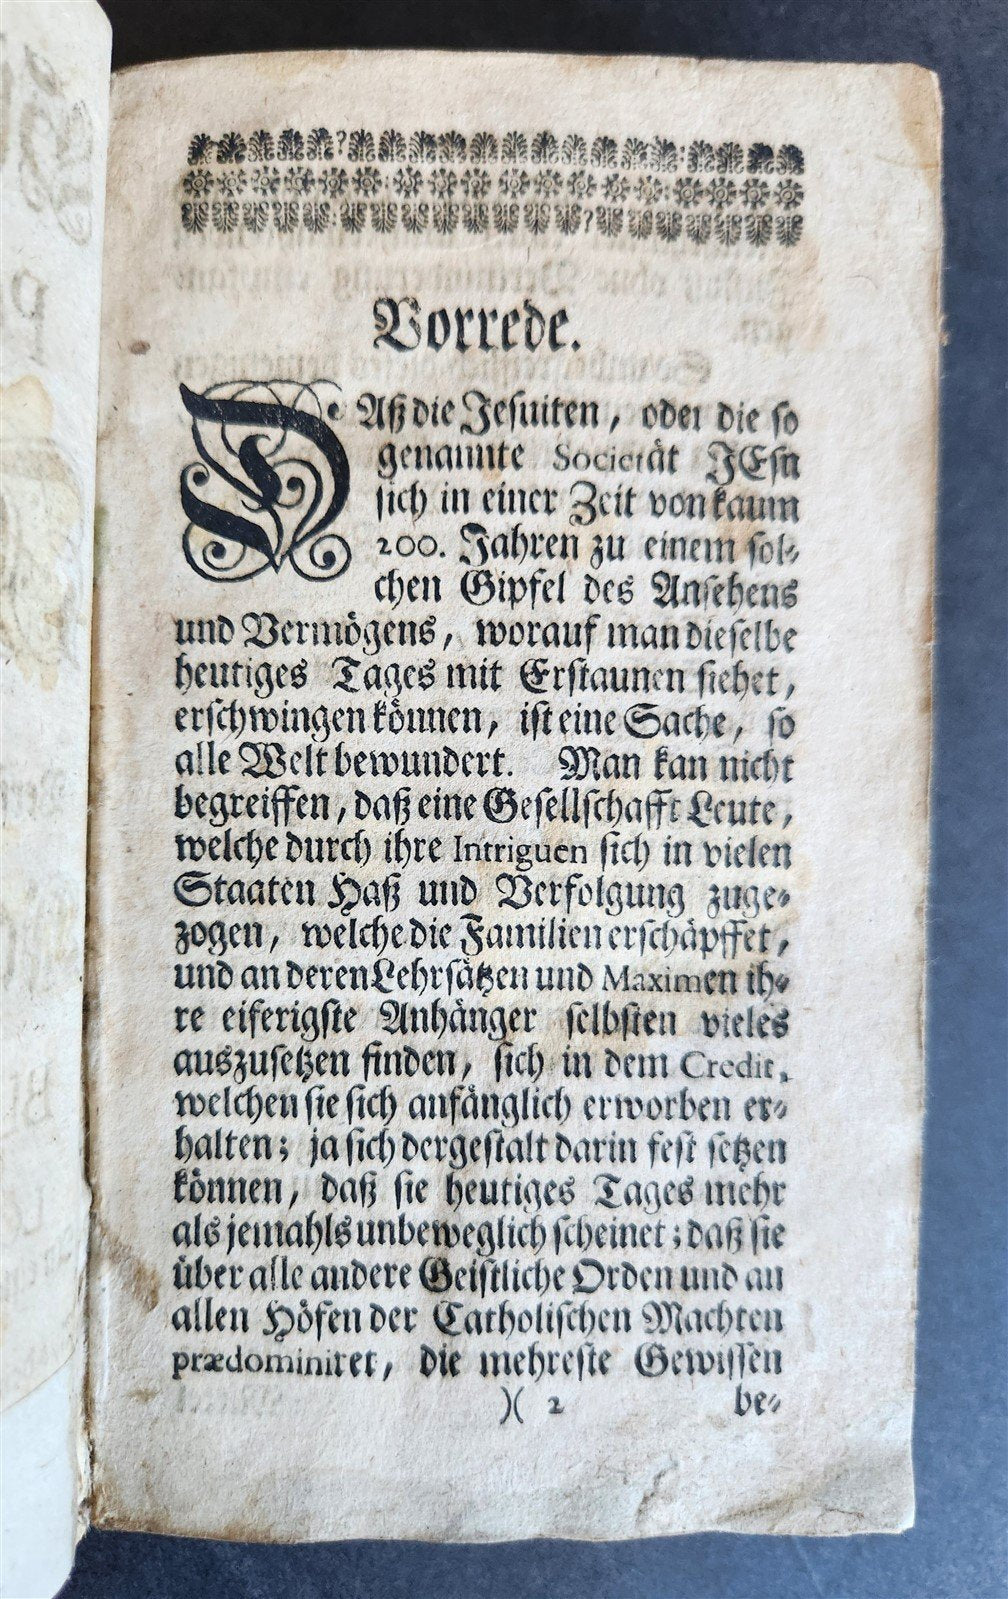 Vorrede.
DAß die Jesuiten, oder die so
genannte Societät JEsu
sich in einer Zeit von kaum
200. Jahren zu einem sol-
chen Gipfel des Ansehens
und Vermögens, worauf man dieselbe
heutiges Tages mit Erstaunen siehet,
erschwingen können, ist eine Sache, so
alle Welt bewundert. Man kan nicht
begreiffen, daß eine Gesellschafft Leute,
welche durch ihre Intriguen sich in vielen
Staaten Haß und Verfolgung zuge-
zogen, welche die Familien erschäpffet,
und an deren Lehrsätzen und Maximen ih-
re eiferigste Anhänger selbsten vieles
auszusetzen finden, sich in dem Credit,
welchen sie sich anfänglich erworben er-
halten; ja sich dergestalt darin fest setzen
können, daß sie heutiges Tages mehr
als jemahls unbeweglich scheinet; daß sie
über alle andere Geistliche Orden und an
allen Höfen der Catholischen Machten
prædominiret, die mehreste Gewissen
)( 2 be-